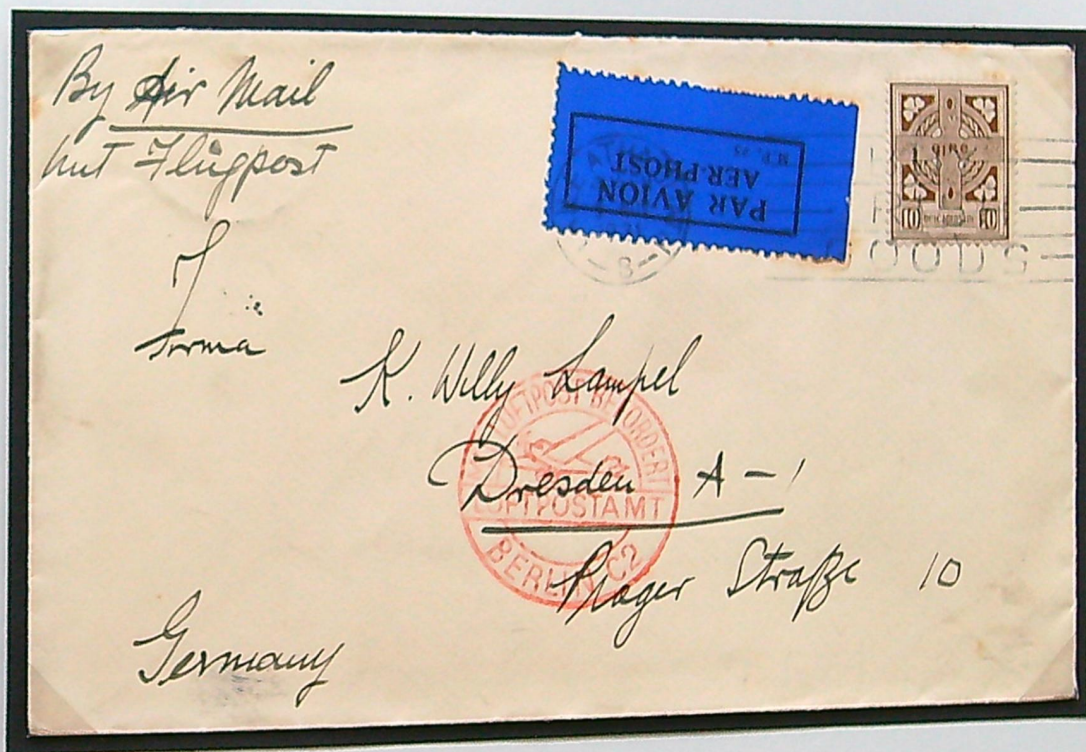 By Air Mail
mit Flugpost
PAR AVION
AER-PHOST
10 10
GOODS
8
Firma
K. Willy Lampel
Dresden A-1
Prager Straße 10
Germany
LUFTPOST BEFÖRDERT
LUFTPOSTAMT
BERLIN C2